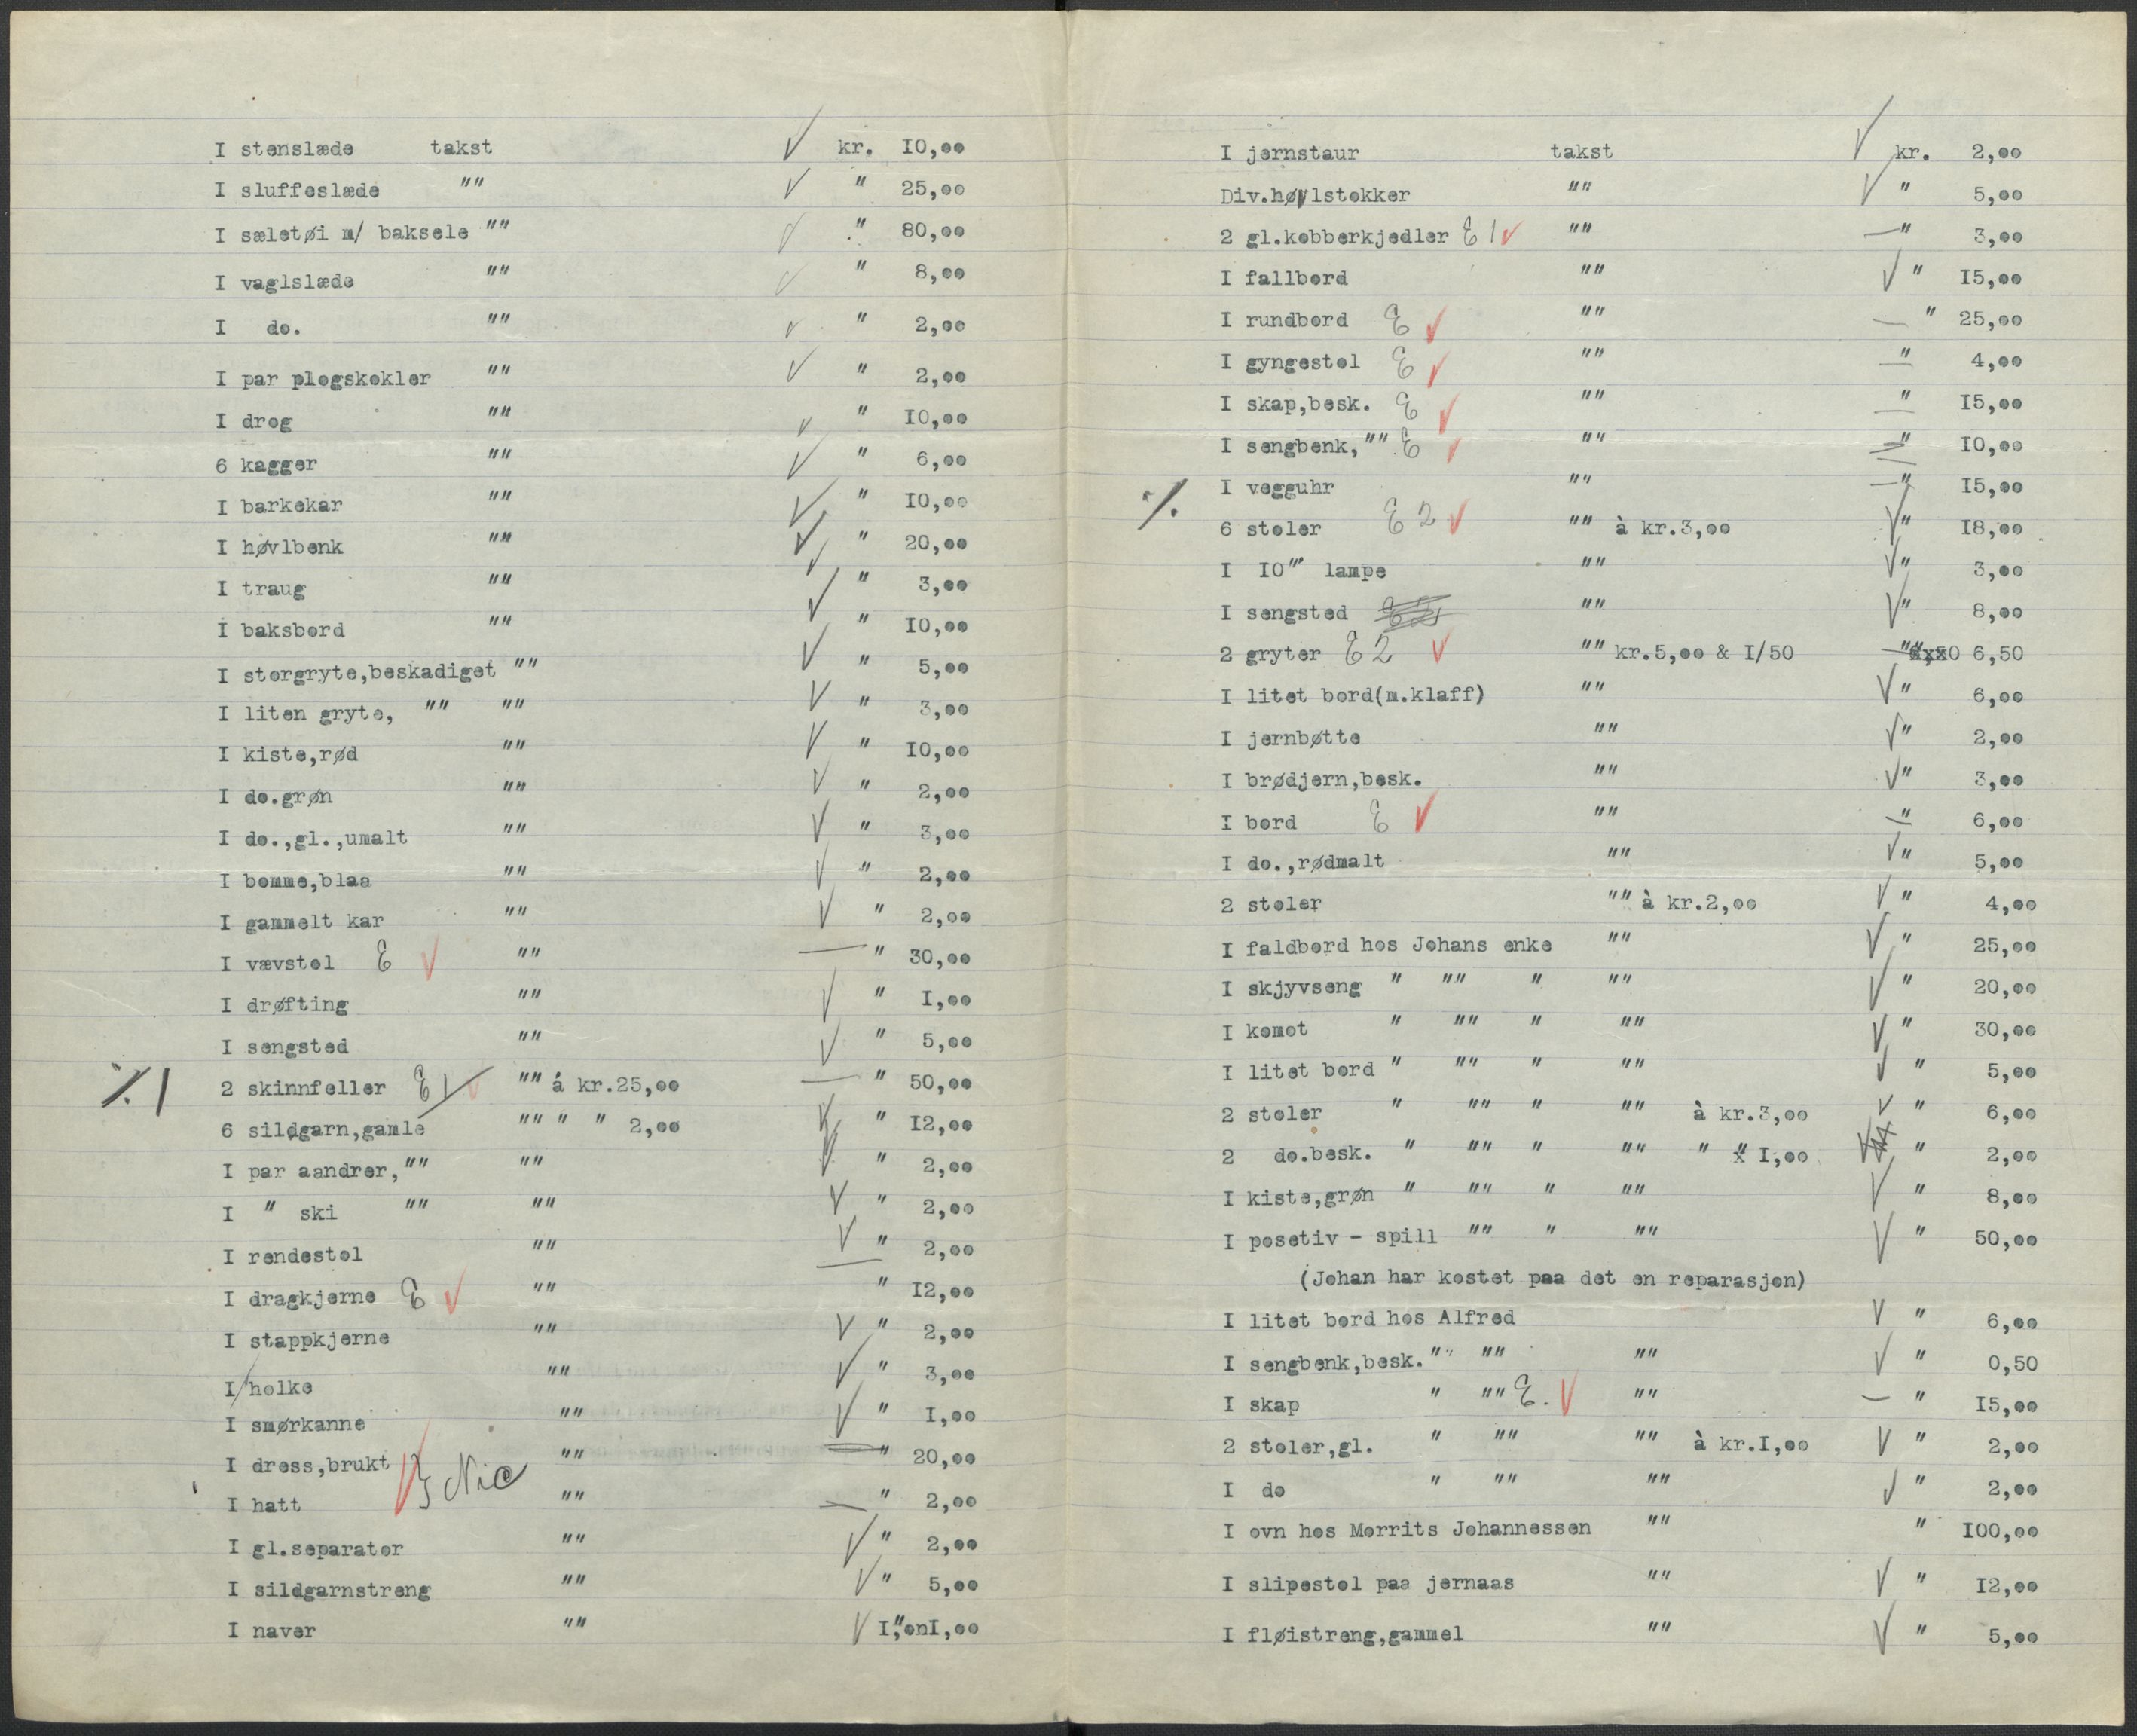 I stenslæde takst kr. I0,oo
I sluffeslæde "" " 25,oo
I sæletøi m/ baksele "" " 80,oo
I vaglslæde "" " 8,oo
I do. "" " 2,oo
I par plogskokler "" " 2,oo
I drog "" " I0,oo
6 kagger "" " 6,oo
I barkekar "" " I0,oo
I høvlbenk "" " 20,oo
I traug "" " 3,oo
I baksbord "" " I0,oo
I storgryte,beskadiget "" " 5,oo
I liten gryte, "" "" " 3,oo
I kiste,rød "" " I0,oo
I do.grøn "" " 2,oo
I do.,gl.,umalt "" " 3,oo
I bomme,blaa "" " 2,oo
I gammelt kar "" " 2,oo
I vævstol E "" " 30,oo
I drøfting "" " I,oo
I sengsted "" " 5,oo
2 skinnfeller E 1 "" á kr.25,oo " 50,oo
6 sildgarn,gamle "" " " 2,oo " I2,oo
I par aandrer,"" "" " 2,oo
I " ski "" "" " 2,oo
I rendestol "" " 2,oo
I dragkjerne E "" " I2,oo
I stappkjerne "" " 2,oo
I holke "" " 3,oo
I smørkanne "" " I,oo
I dress,brukt "" " 20,oo
Nic
I hatt "" " 2,oo
I gl.separator "" " 2,oo
I sildgarnstreng "" " 5,oo
I naver "" I,"onI,oo
I jernstaur takst kr. 2,oo
Div.høvlstokker "" " 5,oo
2 gl.kobberkjedler E 1 "" " 3,oo
I fallbord "" " I5,oo
I rundbord E "" " 25,oo
I gyngestol E "" " 4,oo
I skap,besk. E "" " I5,oo
I sengbenk,"" E "" " I0,oo
I vegguhr "" " I5,oo
6 stoler E 2 "" à kr.3,oo " I8,oo
I I0"' lampe "" " 3,oo
I sengsted "" " 8,oo
2 gryter E 2 "" kr.5,oo & I/50 " 6,50
I litet bord(m.klaff) "" " 6,oo
I jernbøtte "" " 2,oo
I brødjern,besk. "" " 3,oo
I bord E "" " 6,oo
I do.,rødmalt "" " 5,oo
2 stoler "" à kr.2,oo " 4,oo
I faldbord hos Johans enke "" " 25,oo
I skjyvseng " "" " "" " 20,oo
I komot " "" " "" " 30,oo
I litet bord " "" " "" " 5,oo
2 stoler " "" " "" à kr.3,oo " 6,oo
2 do.besk. " "" " "" " " I,oo " 2,oo
I kiste,grøn " "" " "" " 8,oo
I posetiv - spill "" " "" " 50,oo
(Johan har kostet paa det en reparasjon)
I litet bord hos Alfred " 6,oo
I sengbenk,besk."" "" "" " 0,50
I skap " "" E. "" " I5,oo
2 stoler,gl. " "" "" à kr.I,oo " 2,oo
I do " "" "" " 2,oo
I ovn hos Morrits Johannessen "" " I00,oo
I slipestol paa jernaas "" " I2,oo
I fløistreng,gammel "" " 5,oo